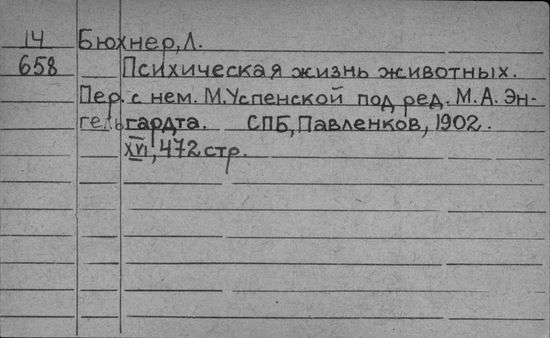 14 Бюхнер, Л.
658 Психическая жизнь животных.
Пер. с нем. М.Успенской под ред. М.А. Эн-
гельгардта. СПБ, Павленков, 1902.
XVI, 472 стр.